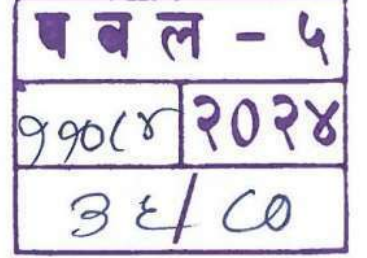 प व ल - ५
११०८४ २०२४
३६/८०